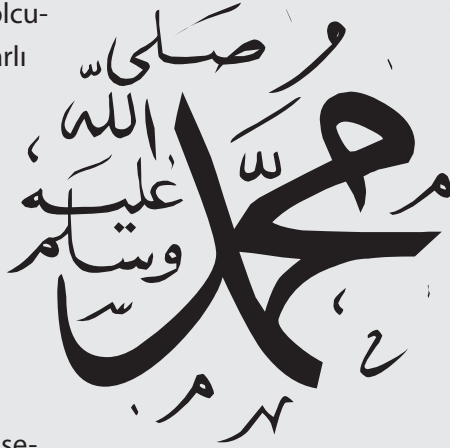 olcu-
arlı
محمد
صلى
الله
عليه
وسلم
se-